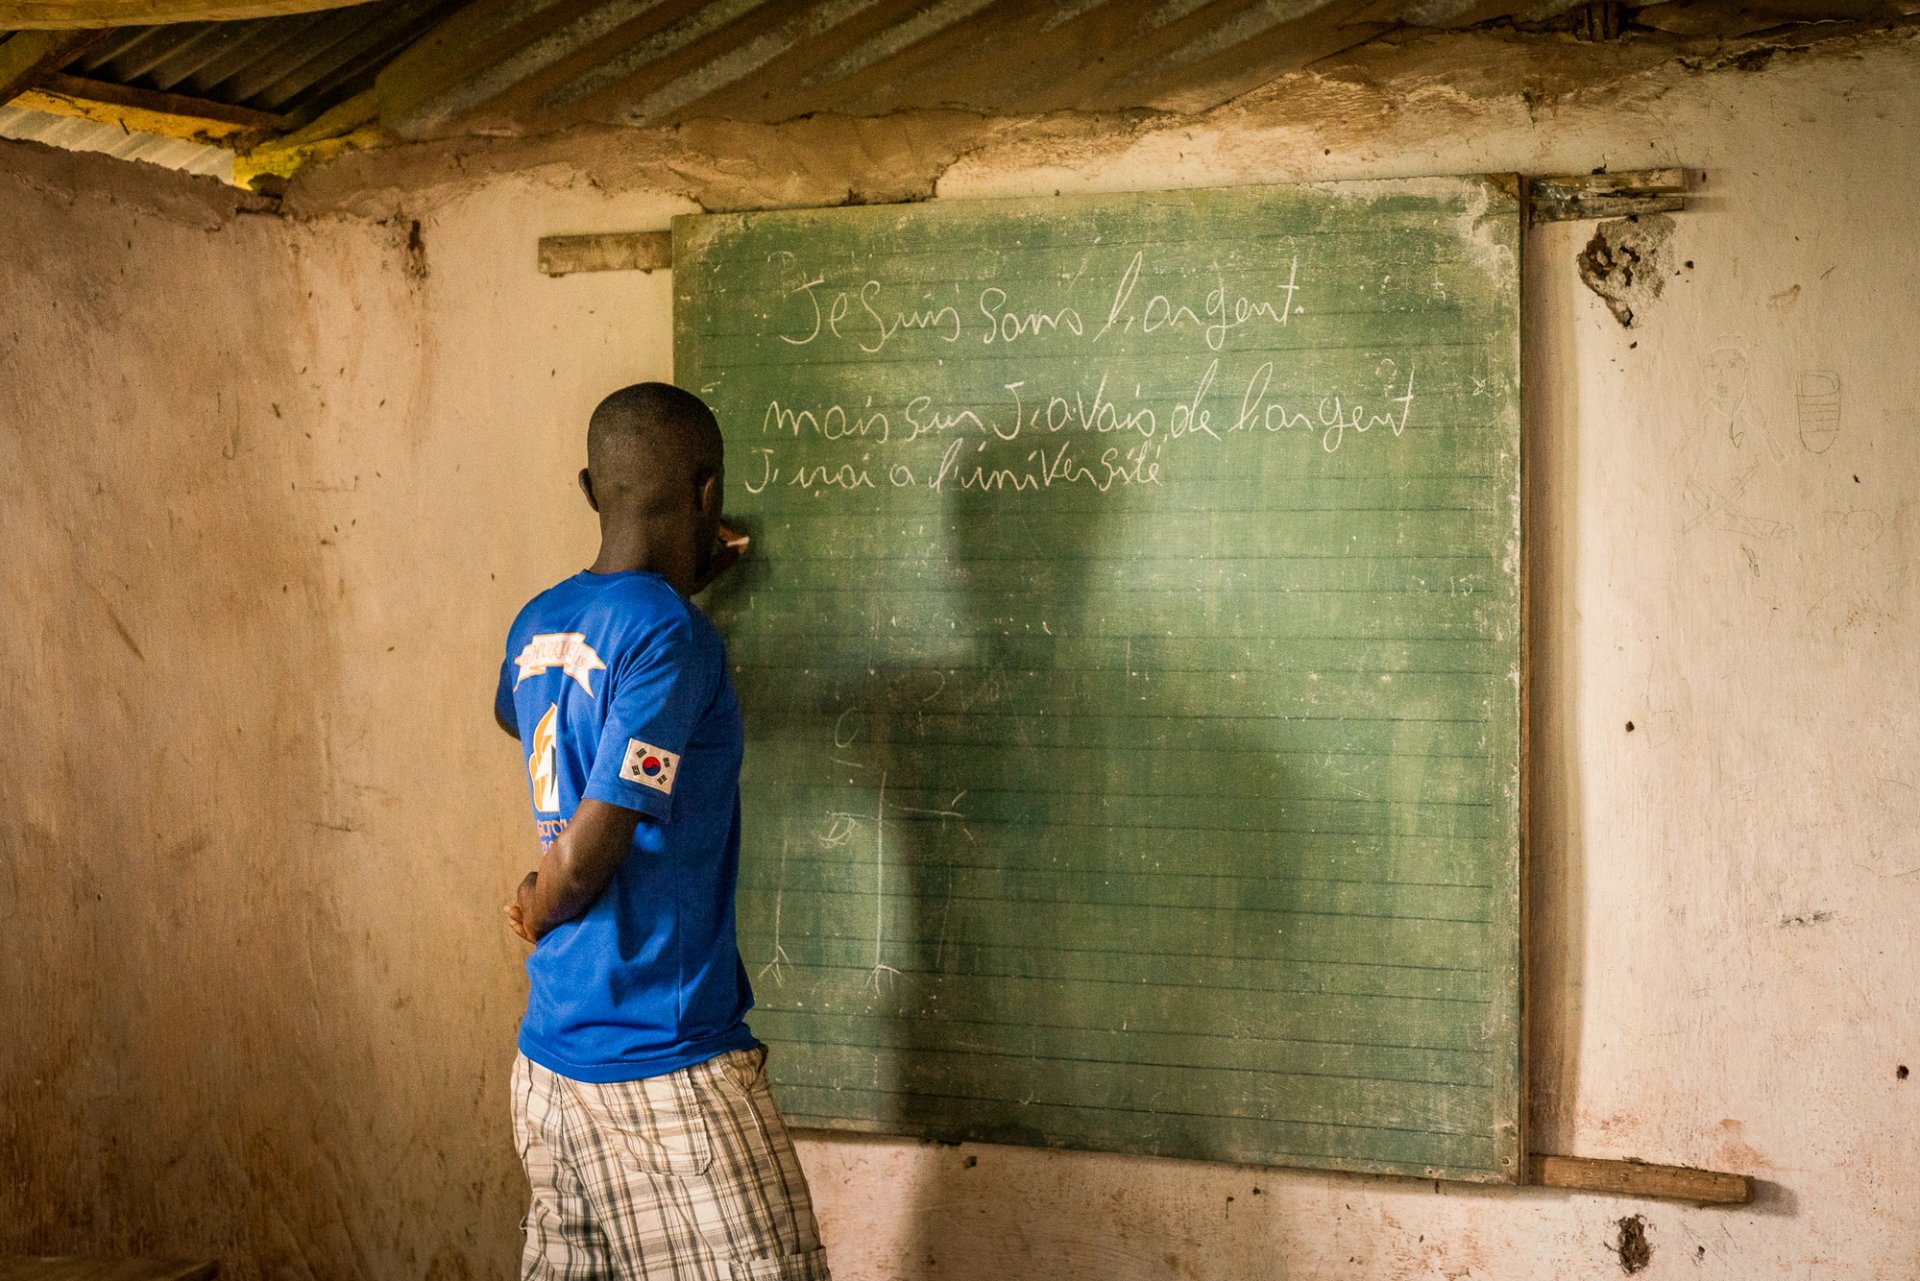 Je suis sans l'argent.
mais sur J'avais de l'argent
J'irai a l'université